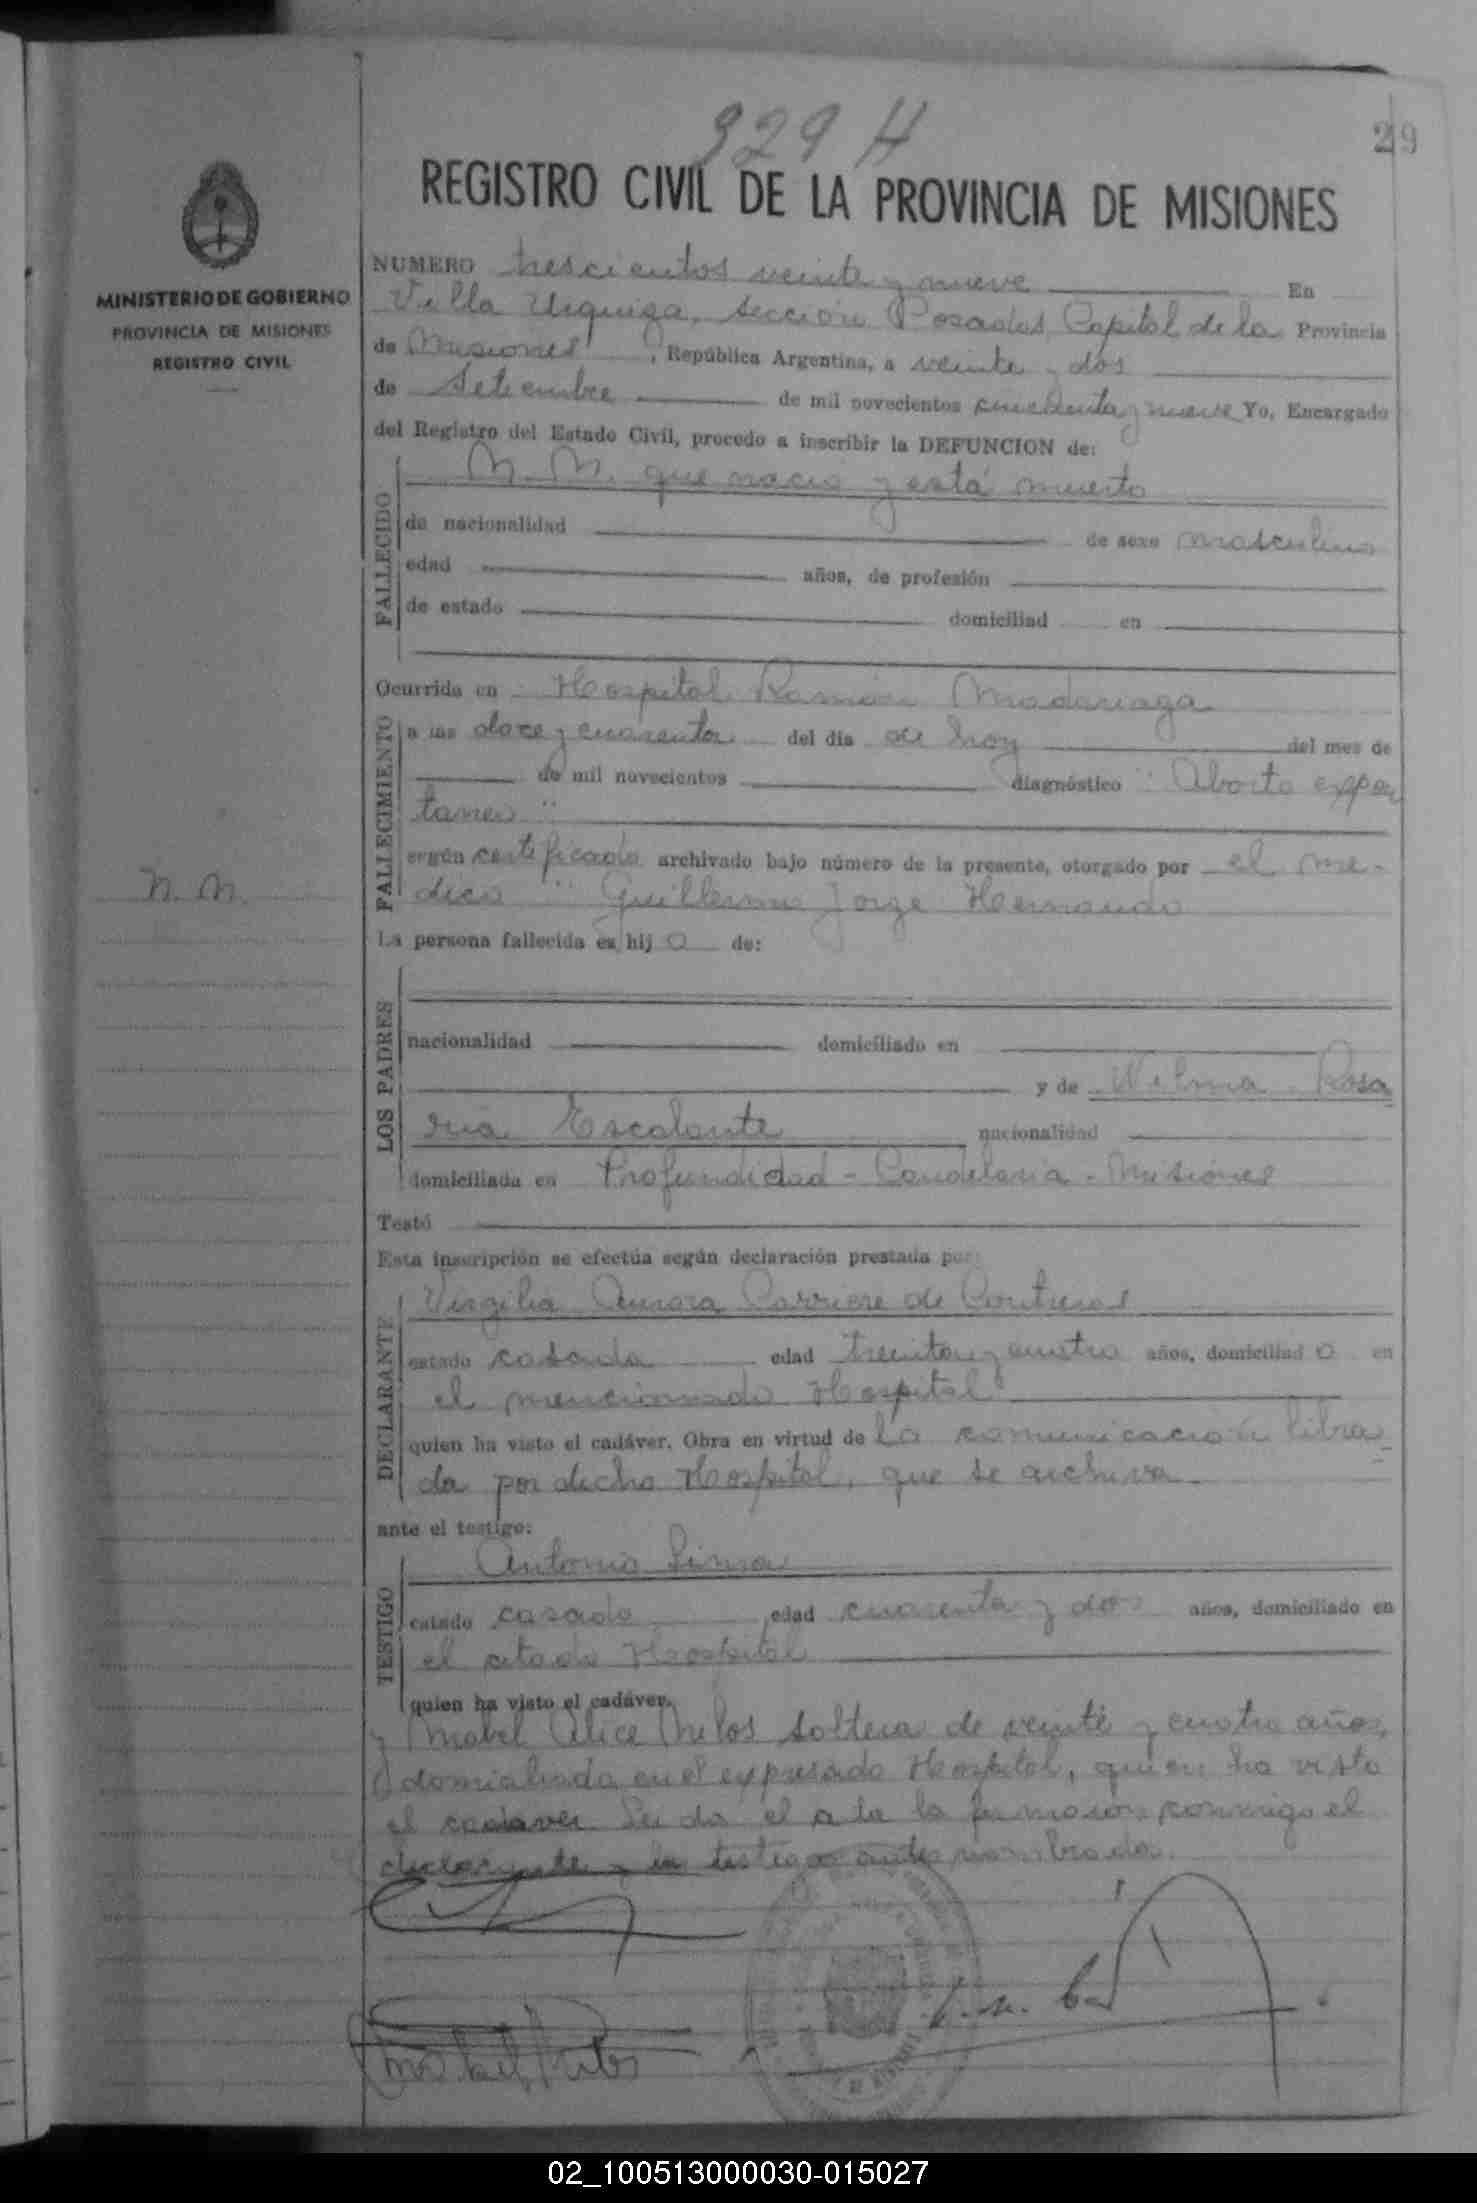 329 H
29
REGISTRO CIVIL DE LA PROVINCIA DE MISIONES
MINISTERIO DE GOBIERNO
PROVINCIA DE MISIONES
REGISTRO CIVIL
NUMERO trescientos veinte y nueve En
Villa Urquiza, sección Posadas, Capital de la Provincia
de Misiones, República Argentina, a veinte y dos
de Setiembre de mil novecientos cincuenta y nueve Yo, Encargado
del Registro del Estado Civil, procedo a inscribir la DEFUNCION de:
FALLECIDO
N. N. que nació y está muerto
de nacionalidad de sexo masculino
edad años, de profesión
de estado domiciliad en
Ocurrida en Hospital Ramón Madariaga
FALLECIMIENTO
a las doce y cuarenta del dia de hoy del mes de
de mil novecientos diagnóstico "Aborto expon
taneo"
según certificado archivado bajo número de la presente, otorgado por el me-
dico Guillermo Jorge Hernando
N. N.
La persona fallecida es hij o de:
LOS PADRES
nacionalidad domiciliado en
y de Wilma Rosa
ria Escalante nacionalidad
domiciliada en Profundidad - Candelaria - Misiones
Testó
Esta inscripción se efectúa según declaración prestada por:
DECLARANTE
Virgilia Aurora Carriere de Contreras
estado casada edad treinta y cuatro años, domiciliad a en
el mencionado Hospital
quien ha visto el cadáver. Obra en virtud de la comunicación libra-
da por dicho Hospital, que se archiva
ante el testigo:
TESTIGO
Antonio Lima
estado casado edad cuarenta y dos años, domiciliado en
el citado Hospital
quien ha visto el cadáver.
y Mabel Alice Melos soltera de veinte y cuatro años,
domiciliada en el expresado Hospital, quien ha visto
el cadaver. Leida el acta la firmaron conmigo el
declarante y la testigo antes nombrada.
02_100513000030-015027